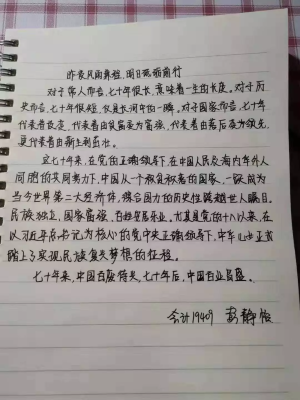 昨夜风雨兼程,明日砥砺前行
对于常人而言,七十年很长,意味着一生的长度。对于历
史而言,七十年很短,仅是长河中的一瞬。对于国家而言,七十年
代表着改变,代表着由贫富变为富强,代表着由落后变为领先,
更代表着由新生到茁壮。
这七十年,在党的正确领导下,在中国人民及海内外华人
同胞的共同努力下,中国从一个积贫积弱的国家,一跃成为
当今世界第二大经济体,综合国力的历史性跨越世人瞩目。
民族独立,国家富强,百姓安居乐业。尤其是党的十八以来,在
以习近平总书记为核心的党中央正确领导下,中华儿女
踏上了实现民族复兴梦想的征程。
七十年来,中国百废待兴,七十年后,中国百业
会计1940 彭静怡